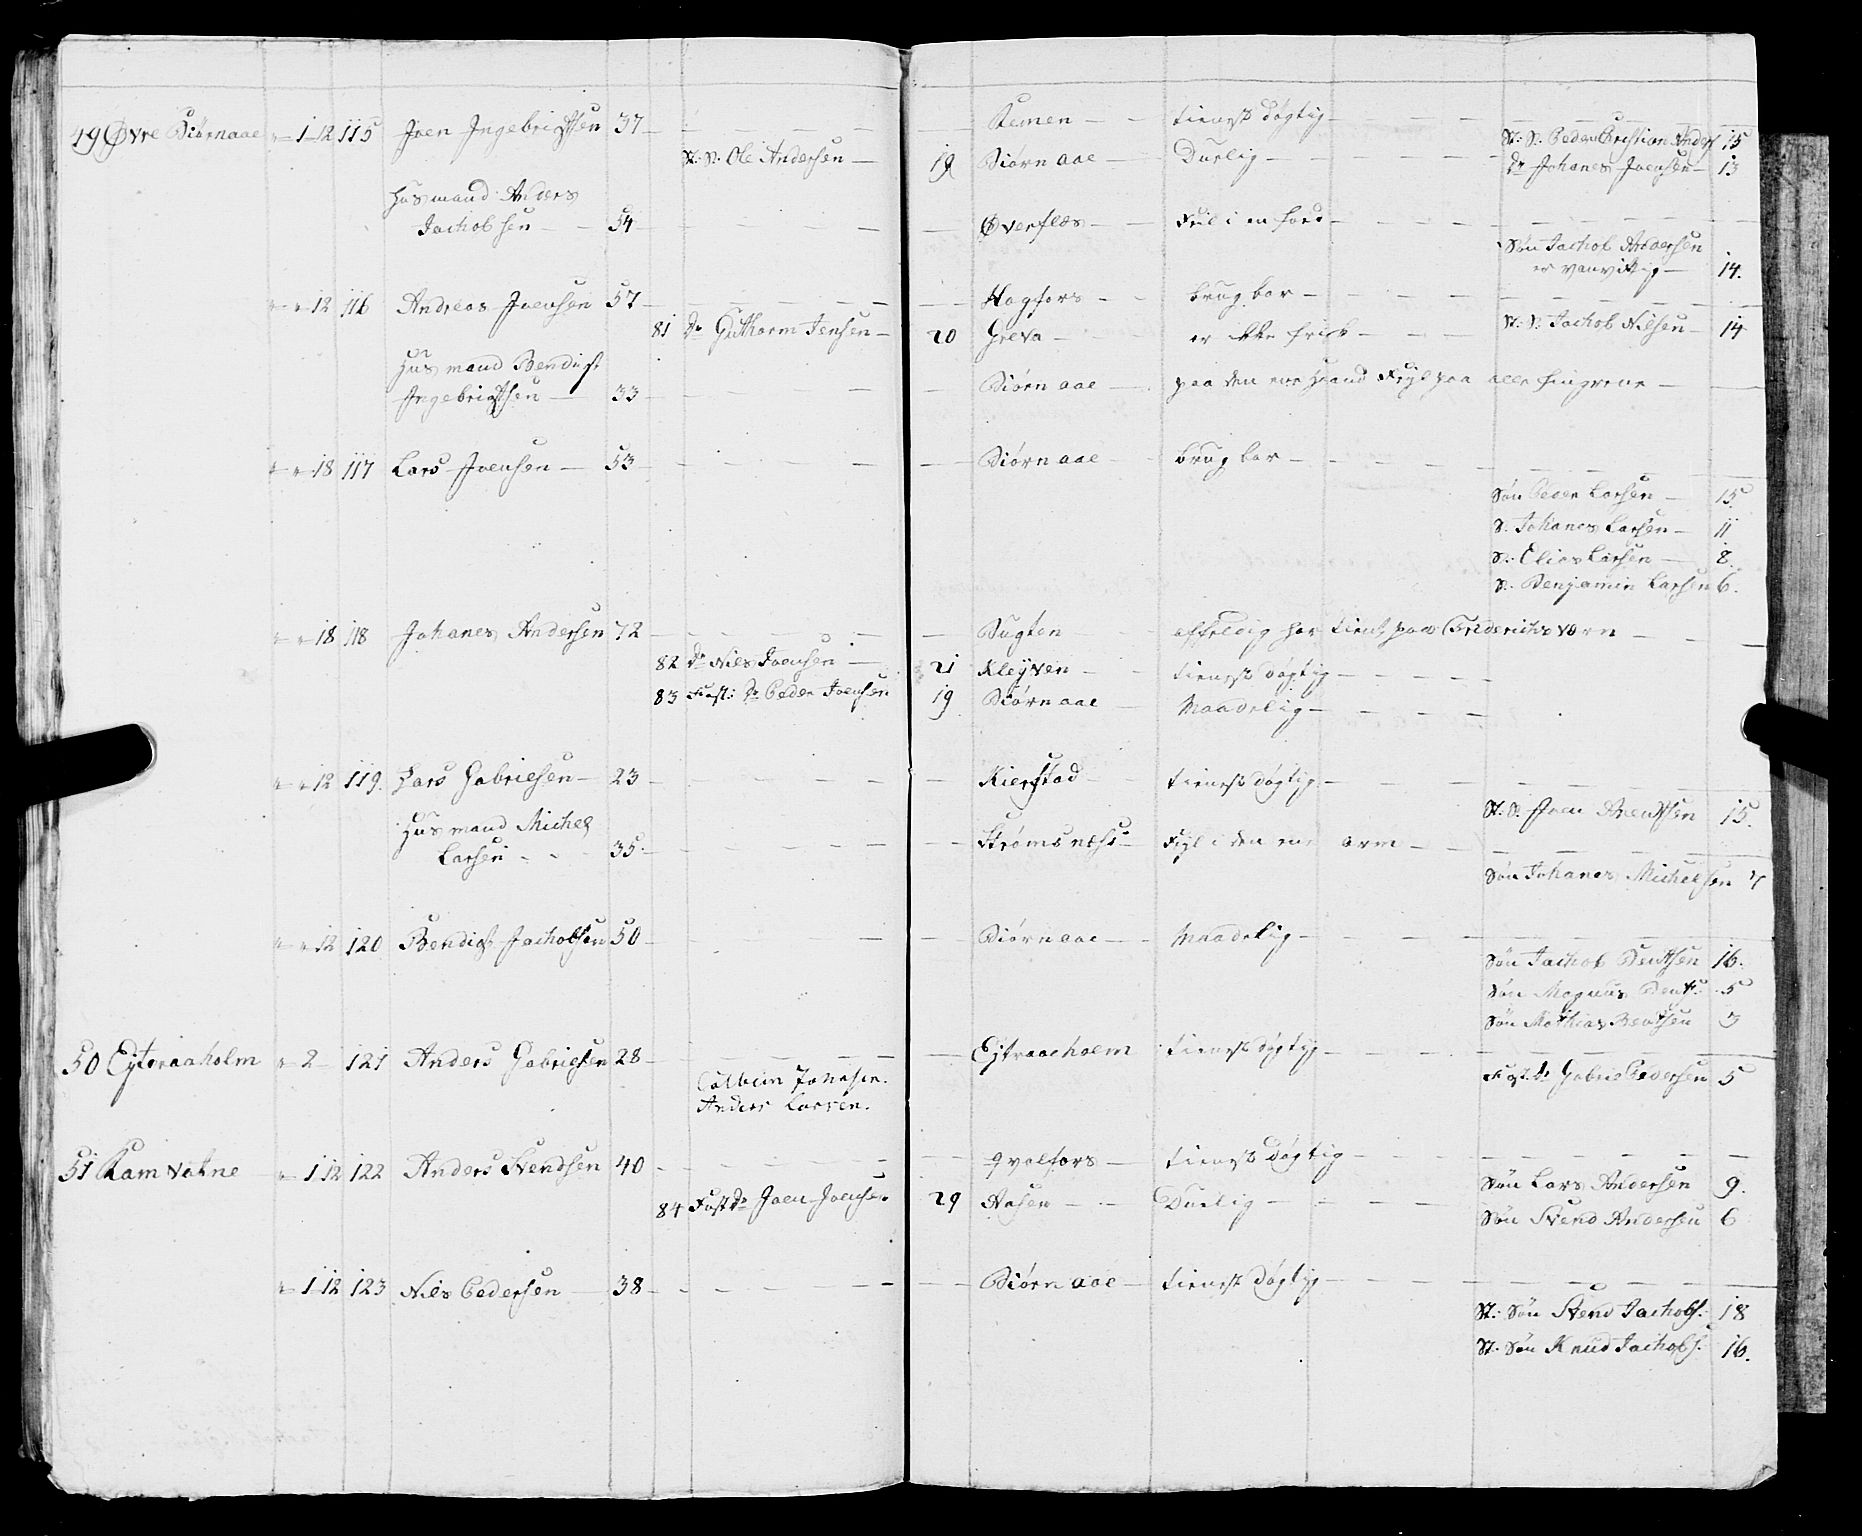 49 Øvre Biørnaae " 1 12 115 Joen Ingebrigtsen 37 Remen tienst døgtig
St: S: Ole Andersen 19 Biørnaae Duelig St: S: Peder Christian Anders 15
Do Johanes Joensen 13
Husmand Anders
Jachobsen 54 Øverflæs Feil i en food
Søn Jachob Andersen
er vanvittig 14.
" " 12 116 Andreas Joensen 57 Hagfors brugbar
81 Do Guthorm Jensen 20 Greva er ikke frisk St: S: Jachob Nilsen 14
Husmand Bendigt
Ingebrigtsen 33 Biørnaae paa den ene Haand Feyl paa alle fingrene
" " 18 117 Lars Joensen 53 Biørnaae brugbar
Søn Peder Larsen 15
S. Johanes Larsen 11
S: Elias Larsen 8.
S: Benjamin Larsen 6.
" " 18 118 Johanes Andersen 72 Sugten affeldig har tient paa Friderichsværn
82 Do Niels Joensen 21 Kleyven tienst døgtig
83 Fost: Do Peder Joensen 19 Biørnaae Maadelig
" " 12 119. Lars Gabrielsen 23 Kierstad tienst døgtig
St: S. Joen Arentsen 15.
Husmand Michel
Larsen 35 Strømsnæss Feyl i den ene arm
Søn Johanes Michelsen 7
" " 12 120 Bendigt Jachobsen 50 Biørnaae Maadelig
Søn Jachob Bentsen 16.
Søn Magnus Bent: 5
Søn Mathias Bentsen 3
50 Eyteraaholm " 2 121 Anders Gabrielsen 28 Eytraaeholm tienst døgtig
Fost: Do Gabriel Pedersen 5
Colbein Jonasen.
Anders Larsen.
51 Ramvatne " 1 12 122 Anders Svendsen 40 qvalfors tienst Døgtig
Søn Lars Andersen 9.
84 Fost Do Joen Joensen 29 Aasen Duelig
Søn Svend Andersen 6
" 1 12 123 Niels Pedersen 38 Biørnaae tienst Døgtig
St: Søn Svend Jachobs: 18
St: Søn Knud Jachobs. 16.